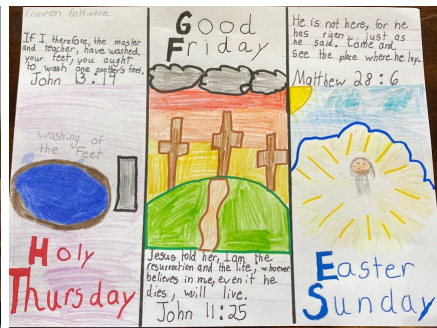 Cameron Cattivera
If I therefore, the master
and teacher, have washed
your feet, you ought
to wash one another's feet.
John 13:14
Washing of
the Feet
Holy
Thursday
Good
Friday
Jesus told her, I am the
resurrection and the life, whoever
believes in me, even it he
dies, will live.
John 11:25
He is not here, for he
has risen, just as
he said. Come and
see the place where he lay.
Matthew 28:6
Easter
Sunday